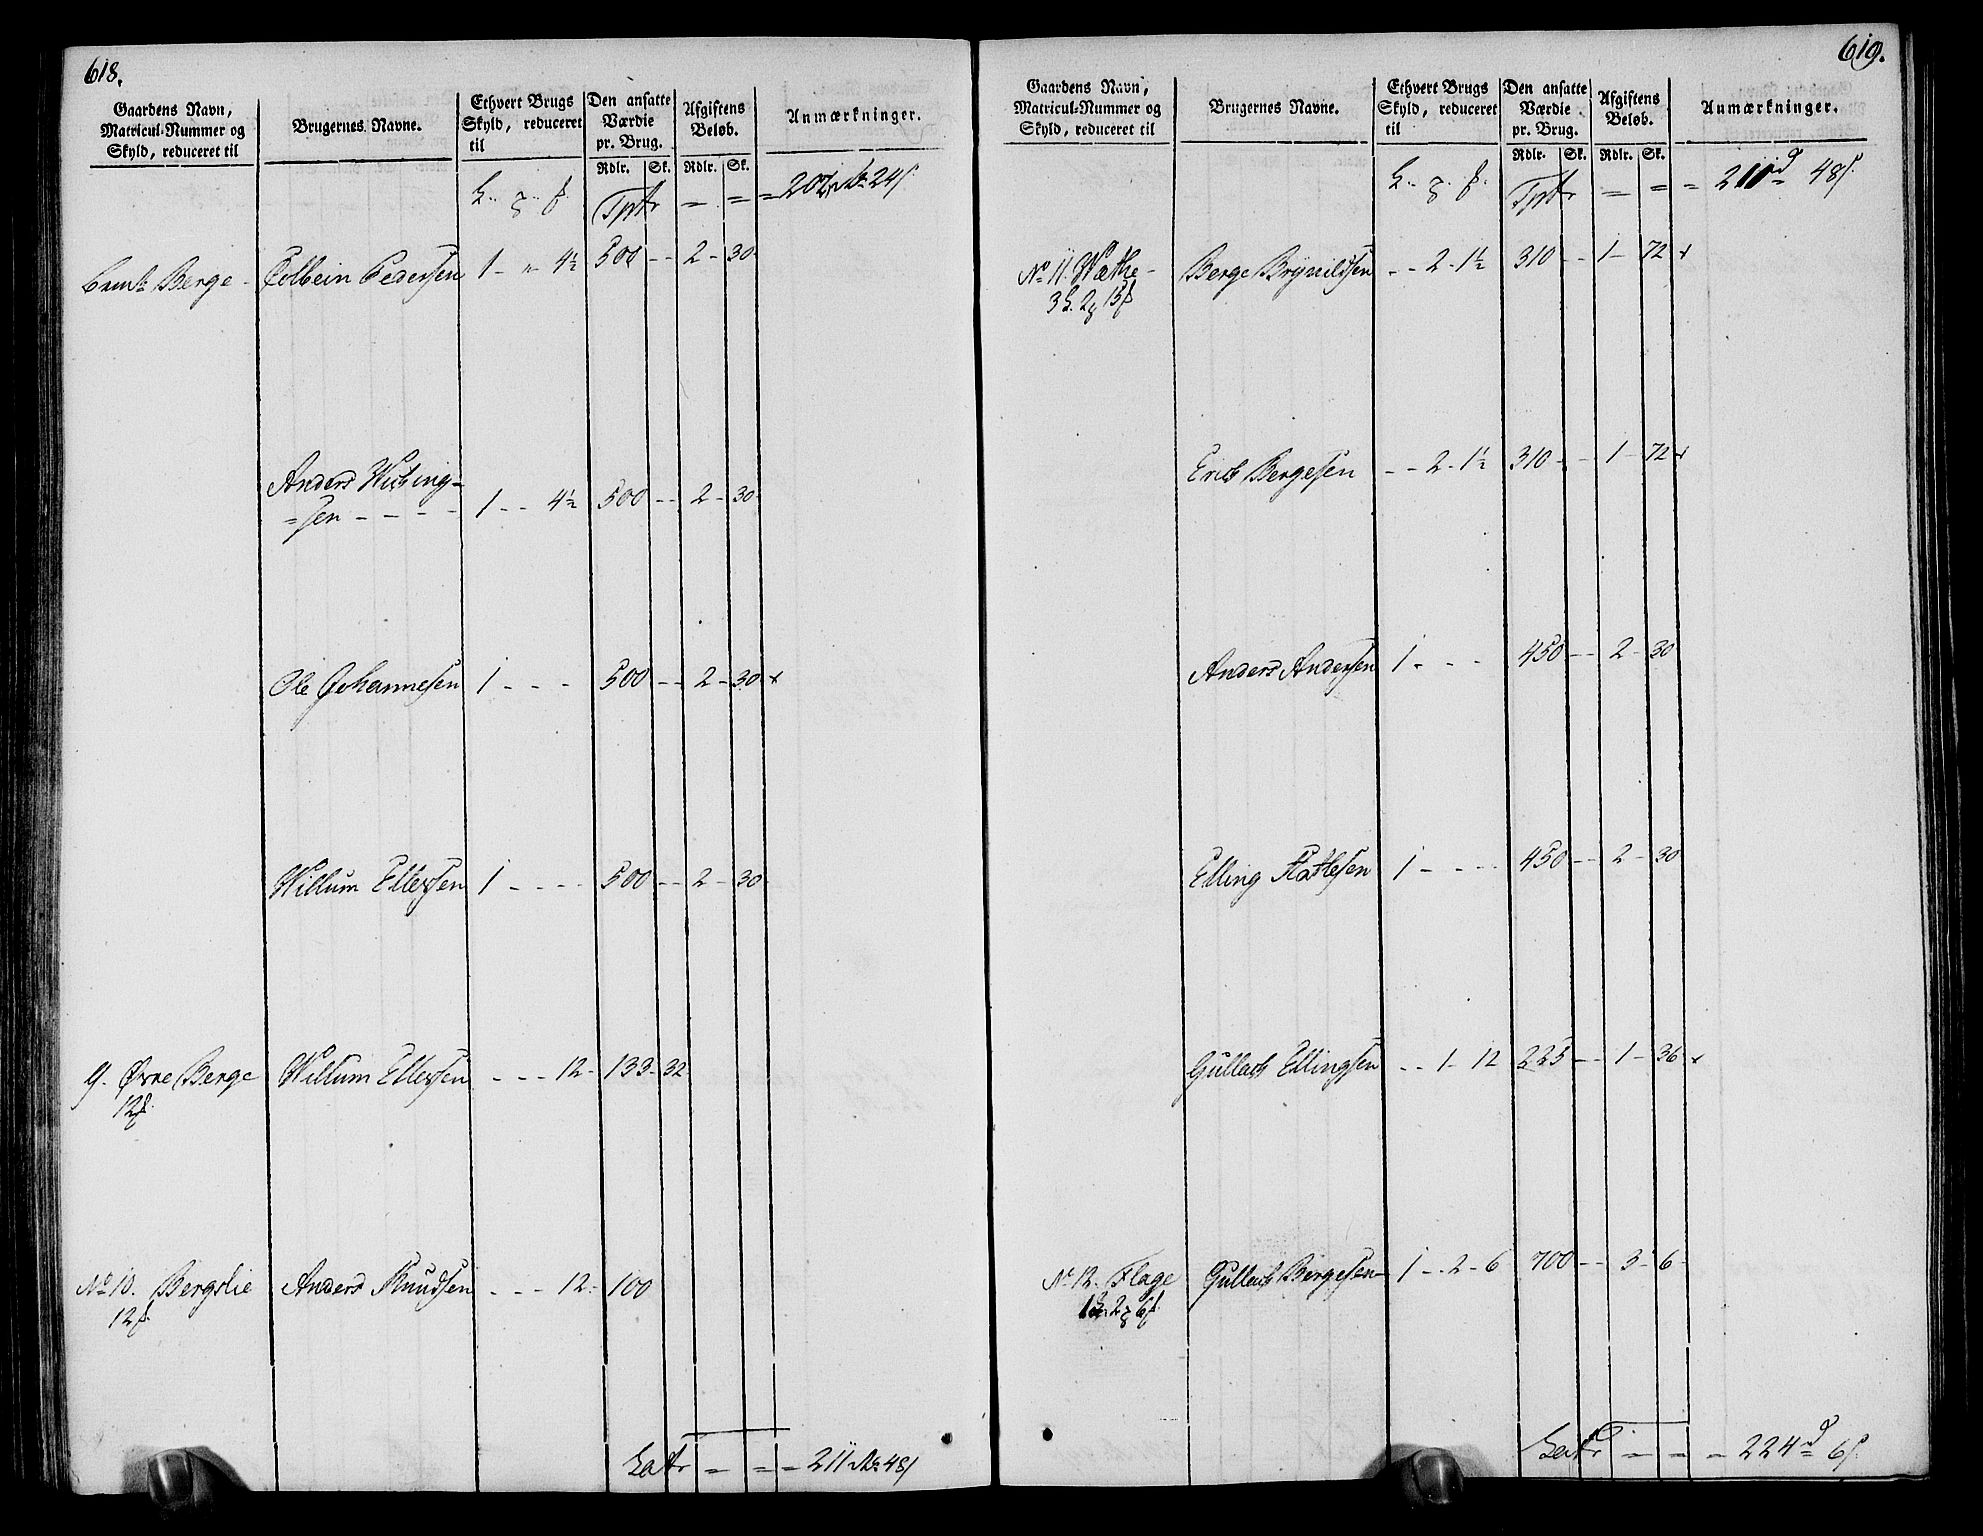 618.
Gaardens Navn,
Matricul-Nummer og
Skyld, reduceret til
Brugernes Navne.
Ethvert Brugs
Skyld, reduceret
til
Den ansatte
Værdie
pr. Brug.
Rdlr. Sk.
Afgiftens
Beløb.
Rdlr. Sk.
Anmærkninger.
Tprtr = = = 24ß
Berge - Colbein Pedersen 1 - " - 4½ 500 - - 2 - 30
Anders
=sen - - - - 1 - - 4½ 500 - - 2 - 30
Ole Johannesen 1 - - - 500 - - 2 - 30 +
Willum Ellefsen 1 - - - - 500 - - 2 - 30
9. Øvre Berge Willum Ellefsen - - - 12 - 133 - 32
12ß.
No 10. Bergslie Anders Knudsen - - - 12 - 100
12ß.
Latr = = = 211 48ß
619.
Gaardens Navn,
Matricul-Nummer og
Skyld, reduceret til
Brugernes Navne.
Ethvert Brugs
Skyld, reduceret
til
Den ansatte
Værdie
pr. Brug.
Rdlr. Sk.
Afgiftens
Beløb.
Rdlr. Sk.
Anmærkninger.
Tprtr = = = 211 48ß.
No 11. Wathe - Berge Brynildsen - - 2 - 1½ 310 - - 1 - 72 +
Erich Bergesen - - 2 - 1½ 310 - - 1 - 72 +
Anders Andersen 1 - - - 450 - - 2 - 30
Elling 1 - - - - 450 - - 2 - 30
Gullach Ellingsen - - 1 - 12 225 - - 1 - 36 +
No 12. Flage Gullach Bergesen 1 - - 2 - 6 700 - - 3 - 6
Latr = = = 224 6ß.